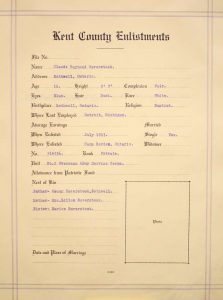 Kent County Enlistments
File No.
Name Claude Raymond Haverstock.
Address Bothwell, Ontario.
Age Height 5' 7" Complexion Fair.
Eyes Blue. Hair Dark. Race White.
Birthplace Bothwell, Ontario. Religion Baptist.
Where Last Employed Detroit, Michigan.
Average Earnings Married
When Enlisted July 1941. Single Yes.
Where Enlisted Camp Borden, Ontario. Widower
No. Rank Private.
Unit No.2 Overseas Army Service Corps.
Allowance from Patriotic Fund
Next of Kin
Father- Haverstock, Bothwell.
Mother- Mrs. Haverstock.
Sister- Haverstock.
Photo
Date and Place of Marriage